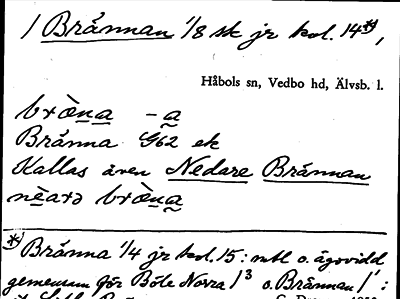 1 Brånnan 1/8 sk jr kol. 14*),
Håbols sn, Vedbo hd, Älvsb. l.
brò̤na - a
Brånna G62 ek
Kallas även Nedare Brånnan
nèarə brò̤na
*) Brånna 1/4 jr kol. 15: mtl o. ägovidd
gemensam för Böle Norra 1 3 o. Brånnan 1 1 :